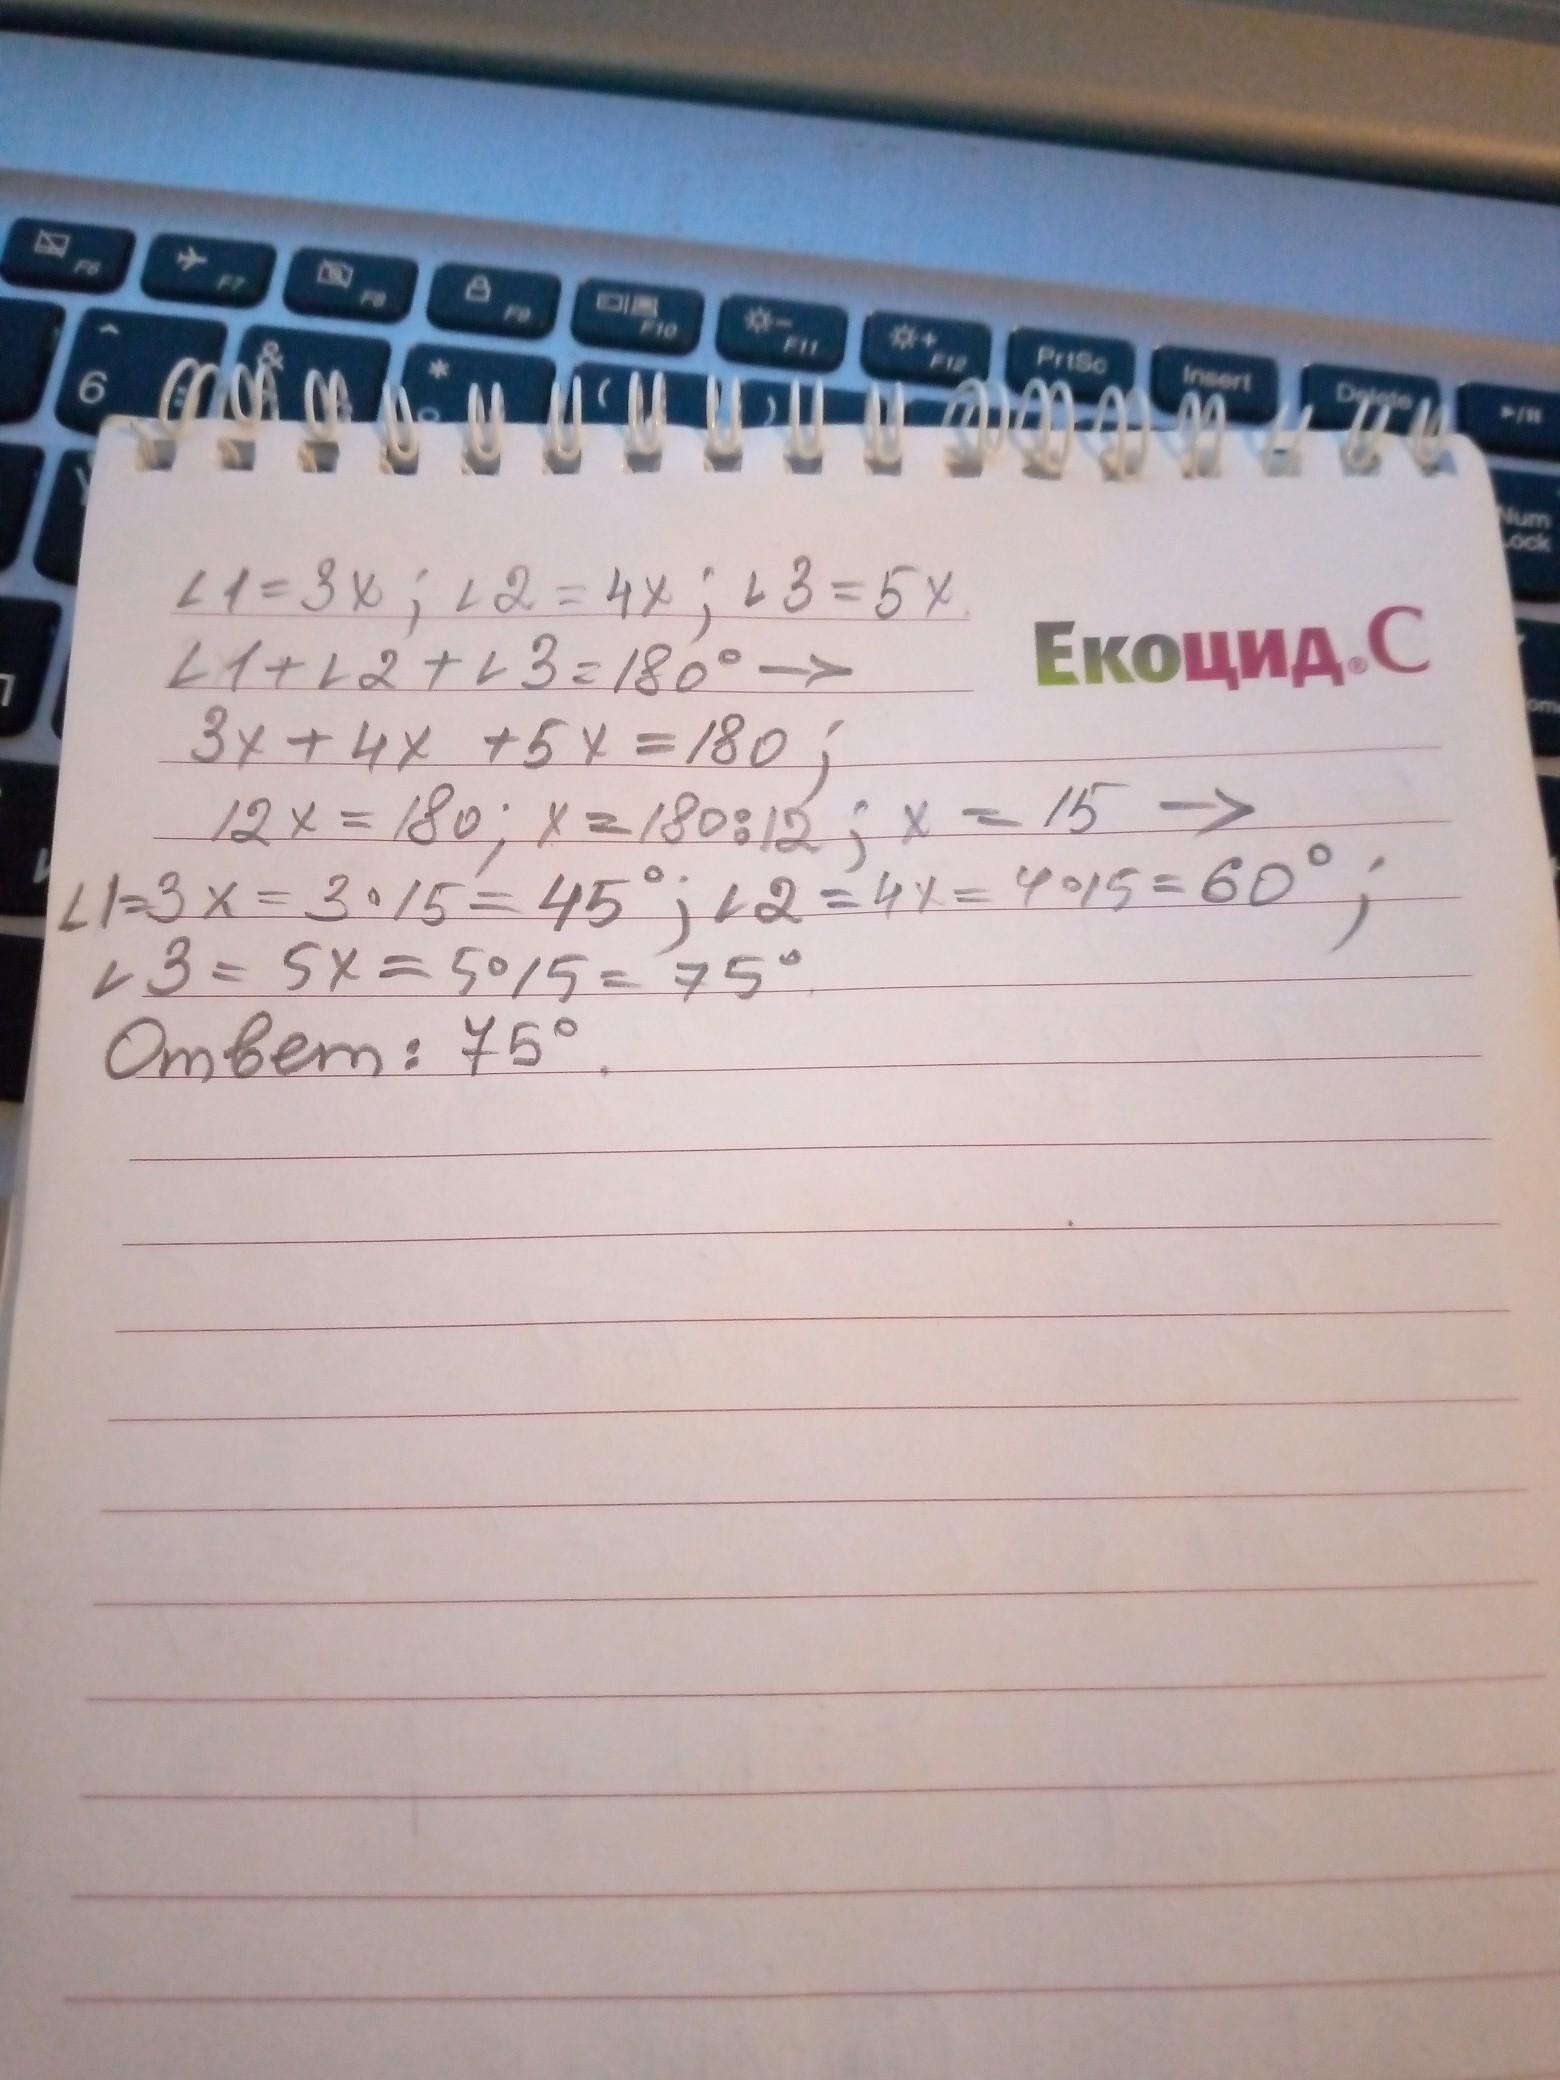 F6 F7 F8 F9 F10 F11 F12 PrtSc Insert Delete
^ & * ( )
6
Num
Lock
∠1=3x; ∠2=4x; ∠3=5x.
∠1+∠2+∠3=180°→
Екоцид®С
3x+4x +5x=180;
12x=180; x=180:12; x=15→
∠1=3x=3·15=45°; ∠2=4x=4·15=60°;
∠3=5x=5·15=75°.
Ответ: 75°.